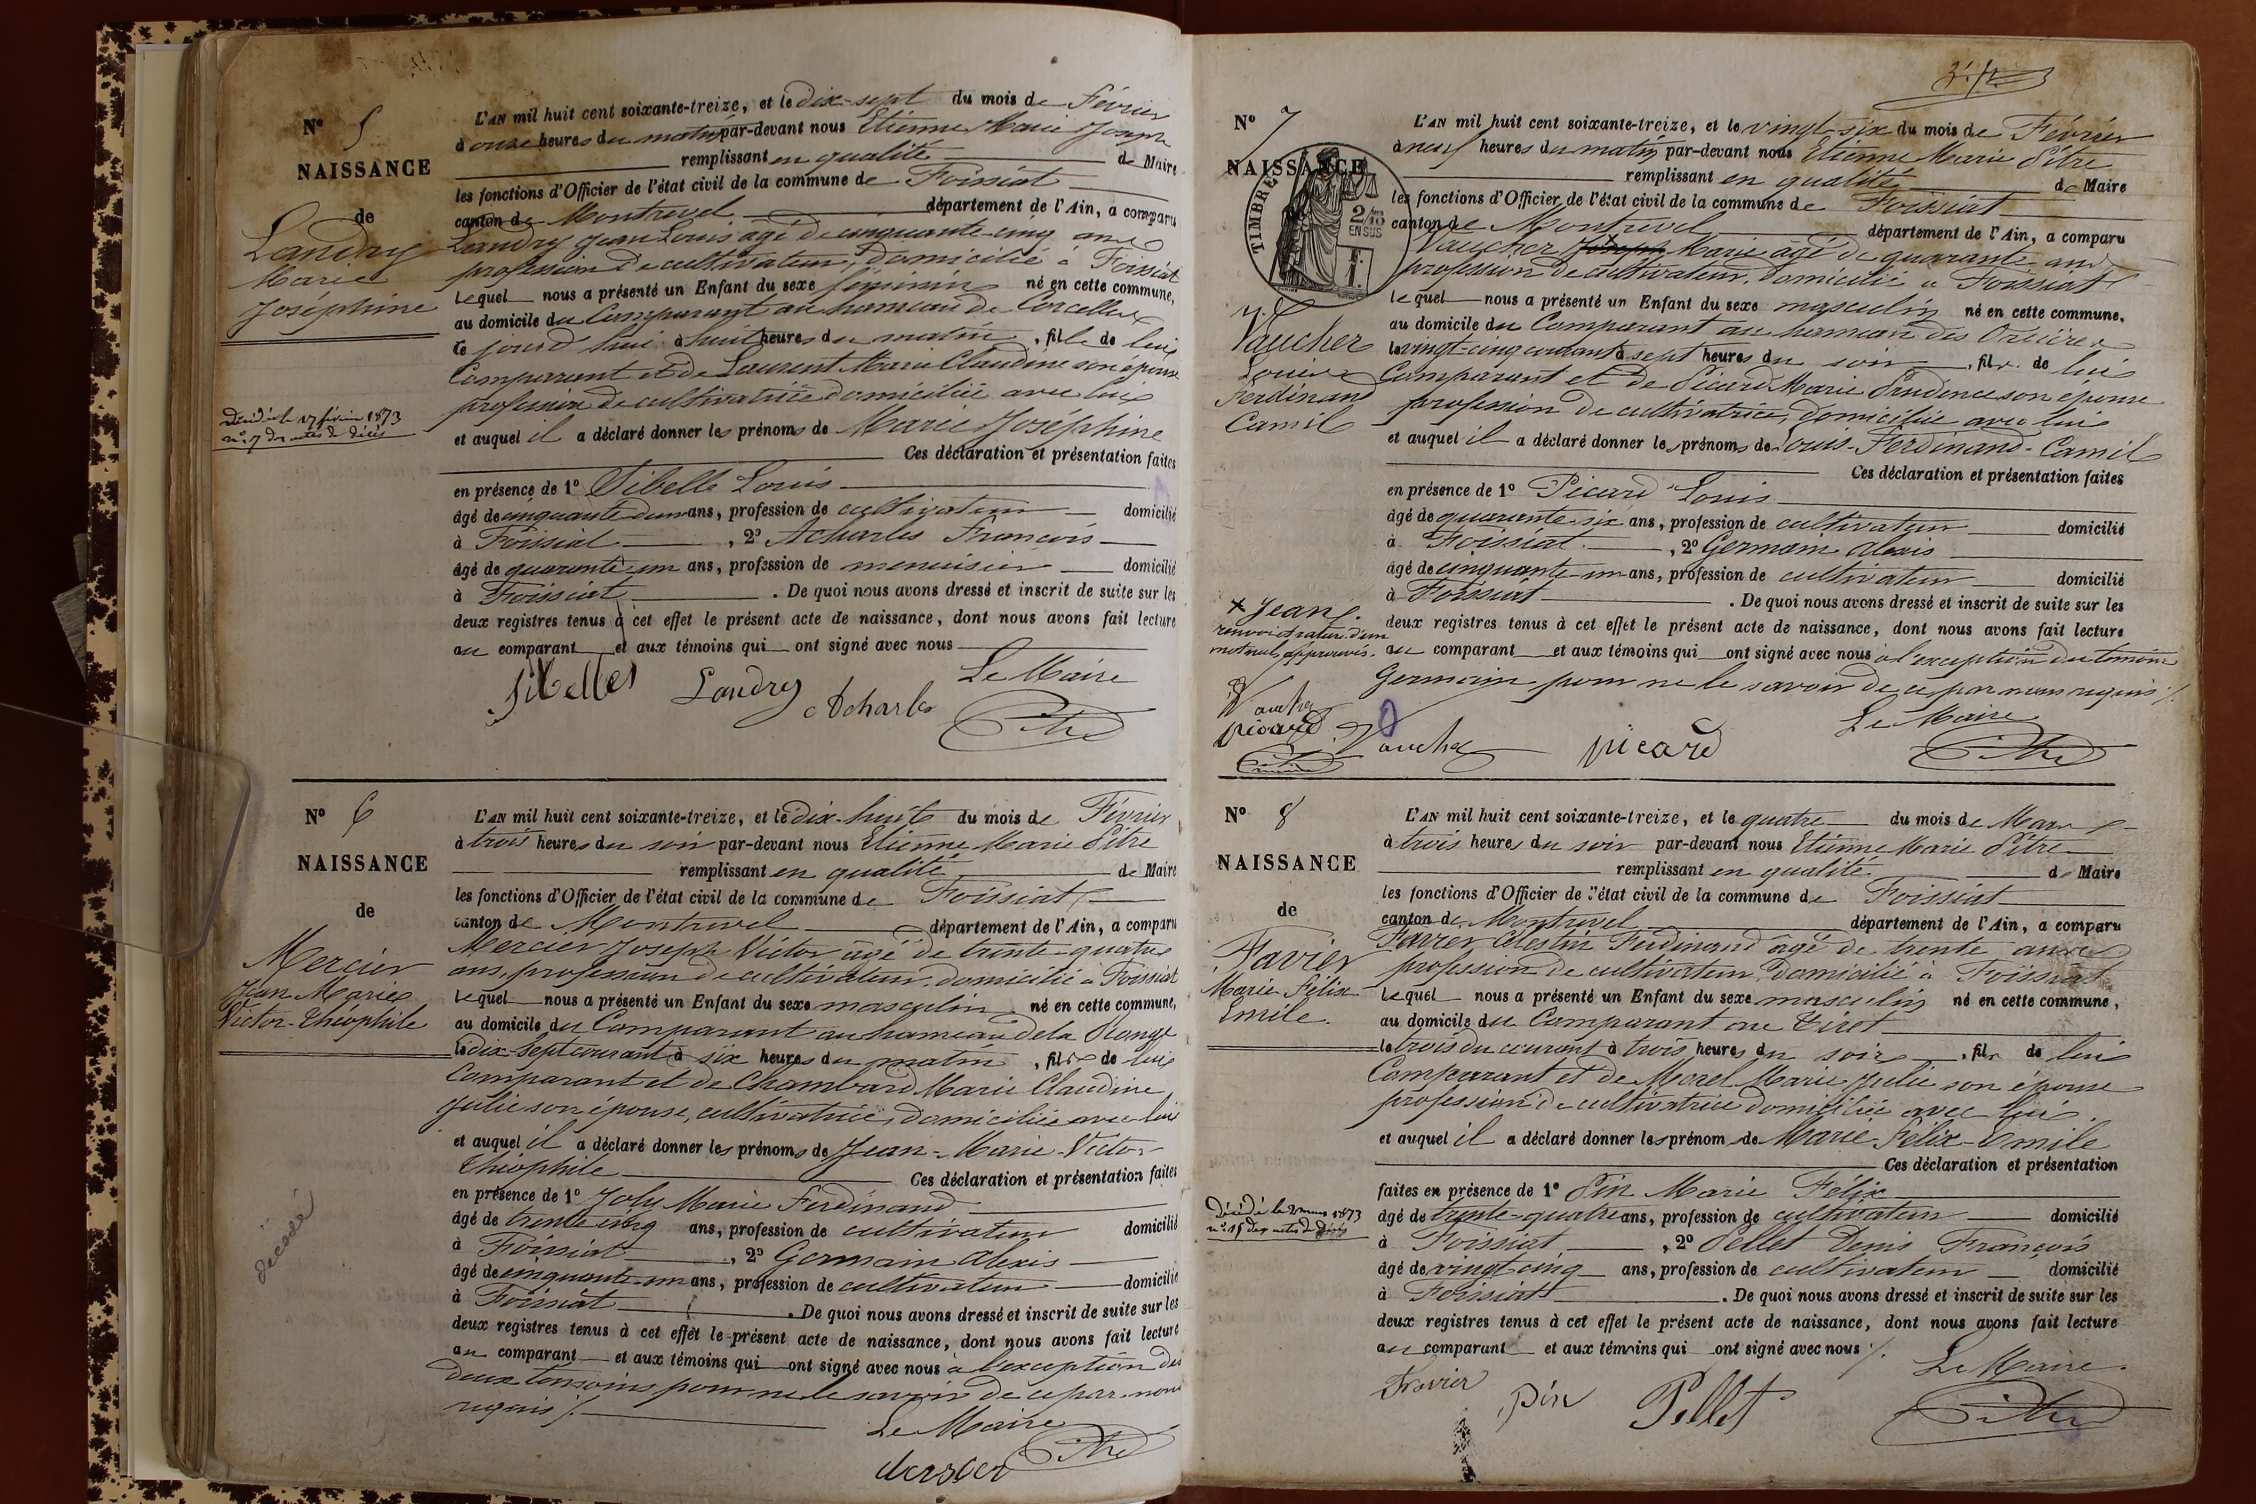 N° 5
NAISSANCE
de
Landry
Marie
Joséphine
Décédé le 17 février 1873
n° 7 des actes de décès
L'AN mil huit cent soixante-treize, et le dix-sept du mois de Février
à onze heures du matin par-devant nous Etienne Marie Joseph
remplissant en qualité de Maire
les fonctions d'Officier de l'état civil de la commune de Foissiat
canton de Montrevel département de l'Ain, a comparu
Landry Jean Louis âgé de cinquante-cinq ans
profession de cultivateur, domicilié à Foissiat
lequel nous a présenté un Enfant du sexe féminin né en cette commune,
au domicile du Comparant au hameau de Corcelles
le jourd'hui à huit heures du matin, fille de lui
Comparant et de Laurent Marie Claudine son épouse
profession de cultivatrice domiciliée avec lui
et auquel il a déclaré donner les prénoms de Marie Joséphine
Ces déclaration et présentation faites
en présence de 1° Sibelle Louis
âgé de cinquante deux ans, profession de cultivateur domicilié
à Foissiat, 2° Acharles François
âgé de quarante-un ans, profession de menuisier domicilié
à Foissiat. De quoi nous avons dressé et inscrit de suite sur les
deux registres tenus à cet effet le présent acte de naissance, dont nous avons fait lecture
au comparant et aux témoins qui ont signé avec nous
Le Maire
Sibelle Landry Acharles Pitre
N° 6
NAISSANCE
de
Mercier
Jean Marie
Victor-Théophile
décédé
L'AN mil huit cent soixante-treize, et le dix-huit du mois de Février
à trois heures du soir par-devant nous Etienne Marie Pitre
remplissant en qualité de Maire
les fonctions d'Officier de l'état civil de la commune de Foissiat
canton de Montrevel département de l'Ain, a comparu
Mercier Joseph Victor âgé de trente-quatre
ans, profession de cultivateur, domicilié à Foissiat
lequel nous a présenté un Enfant du sexe masculin né en cette commune,
au domicile du Comparant au hameau de la
le dix-sept courant à six heures du matin, fils de lui
Comparant et de Chambard Marie Claudine
Julie son épouse, cultivatrice, domiciliée avec lui
et auquel il a déclaré donner les prénoms de Jean-Marie-Victor-
Théophile Ces déclaration et présentation faites
en présence de 1° Joly Marie Ferdinand
âgé de trente cinq ans, profession de cultivateur domicilié
à Foissiat, 2° Germain Alexis
âgé de cinquante-un ans, profession de cultivateur domicilié
à Foissiat. De quoi nous avons dressé et inscrit de suite sur les
deux registres tenus à cet effet le présent acte de naissance, dont nous avons fait lecture
au comparant et aux témoins qui ont signé avec nous à l'exception des
deux témoins pour ne le savoir de ce par nous
requis /.
Le Maire
Mercier Pitre
N° 7
NAISSANCE
TIMBRE
2/10 EN SUS
Vaucher
Louis
Ferdinand
Camil
+ Jean.
renvoi et rature d'un
mot nul approuvés.
Vaucher
picard
Pitre
L'AN mil huit cent soixante-treize, et le vingt-six du mois de Février
à neuf heures du matin par-devant nous Etienne Marie Pitre
remplissant en qualité de Maire
les fonctions d'Officier de l'état civil de la commune de Foissiat
canton de Montrevel département de l'Ain, a comparu
Vaucher Joseph Marie âgé de quarante ans
profession de cultivateur, domicilié à Foissiat
lequel nous a présenté un Enfant du sexe masculin né en cette commune,
au domicile du Comparant au hameau des Orcières
le vingt-cinq courant à sept heures du soir, fils de lui
Comparant et de Picard Marie Prudence son épouse
profession de cultivatrice, domiciliée avec lui
et auquel il a déclaré donner les prénoms de Louis-Ferdinand-Camil
Ces déclaration et présentation faites
en présence de 1° Picard Louis
âgé de quarante-six ans, profession de cultivateur domicilié
à Foissiat, 2° Germain Alexis
âgé de cinquante-un ans, profession de cultivateur domicilié
à Foissiat. De quoi nous avons dressé et inscrit de suite sur les
deux registres tenus à cet effet le présent acte de naissance, dont nous avons fait lecture
au comparant et aux témoins qui ont signé avec nous à l'exception du témoin
Germain pour ne le savoir de ce par nous requis /.
Le Maire
Vaucher picard Pitre
N° 8
NAISSANCE
de
Favier
Marie Félix
Emile.
Décédé le mars 1873
n° 15 des actes de décès
L'AN mil huit cent soixante-treize, et le quatre du mois de Mars
à trois heures du soir par-devant nous Etienne Marie Pitre
remplissant en qualité de Maire
les fonctions d'Officier de l'état civil de la commune de Foissiat
canton de Montrevel département de l'Ain, a comparu
Favier Célestin Ferdinand âgé de trente ans
profession de cultivateur domicilié à Foissiat
lequel nous a présenté un Enfant du sexe masculin né en cette commune,
au domicile du Comparant au Tiret
le trois du courant à trois heures du soir, fils de lui
Comparant et de Morel Marie Julie son épouse
profession de cultivatrice domiciliée avec lui.
et auquel il a déclaré donner les prénom de Marie-Félix-Emile
Ces déclaration et présentation
faites en présence de 1° Pin Marie Félix
âgé de trente-quatre ans, profession de cultivateur domicilié
à Foissiat, 2° Pellet Denis François
âgé de vingt cinq ans, profession de cultivateur domicilié
à Foissiat. De quoi nous avons dressé et inscrit de suite sur les
deux registres tenus à cet effet le présent acte de naissance, dont nous avons fait lecture
au comparant et aux témoins qui ont signé avec nous /.
Le Maire.
Favier Pin Pellet Pitre